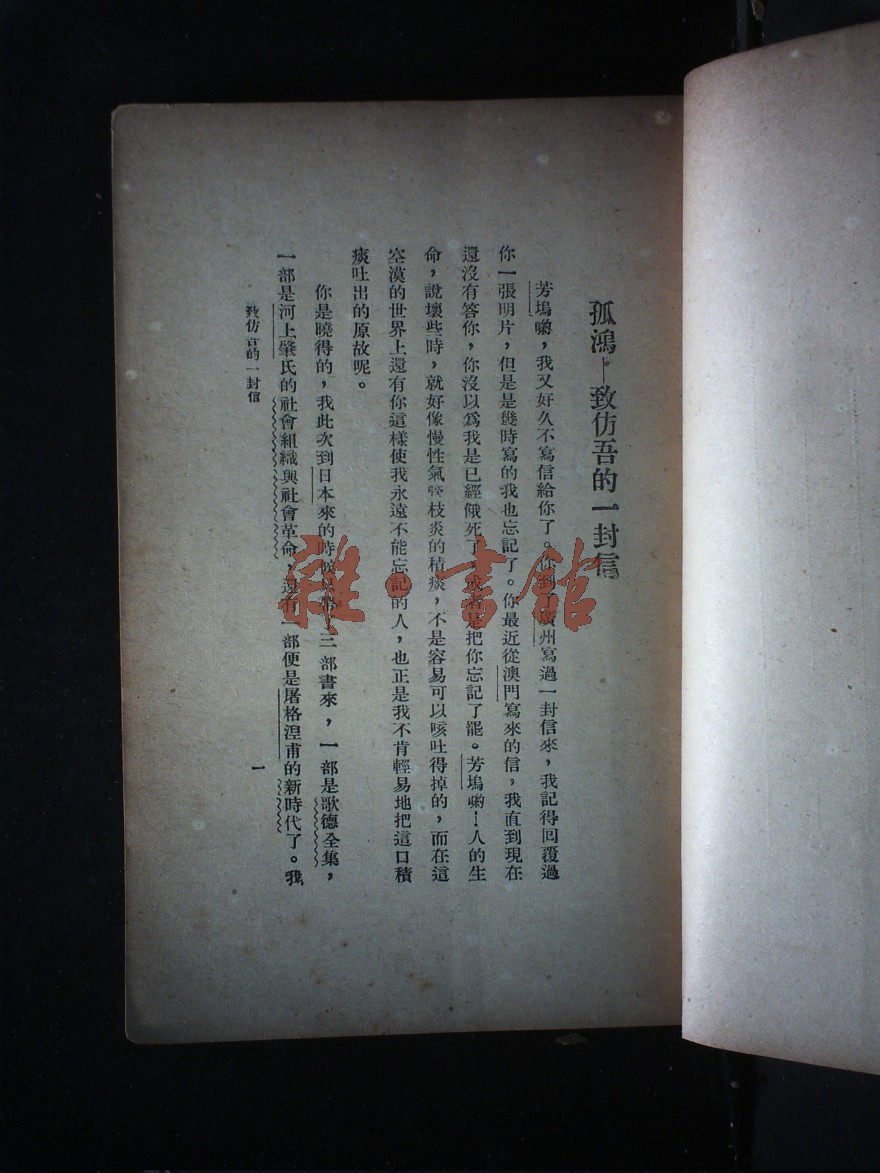 孤鴻——致仿吾的一封信
芳塢喲，我又好久不寫信給你了。你到了廣州寫過一封信來，我記得回覆過
你一張明片，但是是幾時寫的我也忘記了。你最近從澳門寫來的信，我直到現在
還沒有答你，你沒以爲我是已經餓死了，或者是把你忘記了罷。芳塢喲！人的生
命，說壞些時，就好像慢性氣管枝炎的積痰，不是容易可以咳吐得掉的，而在這
空漠的世界上還有你這樣使我永遠不能忘記的人，也正是我不肯輕易地把這口積
痰吐出的原故呢。
你是曉得的，我此次到日本來的時候只帶了三部書來，一部是歌德全集，
一部是河上肇氏的社會組織與社會革命，還有一部便是屠格涅甫的新時代了。我
致仿吾的一封信
一
雜·書館